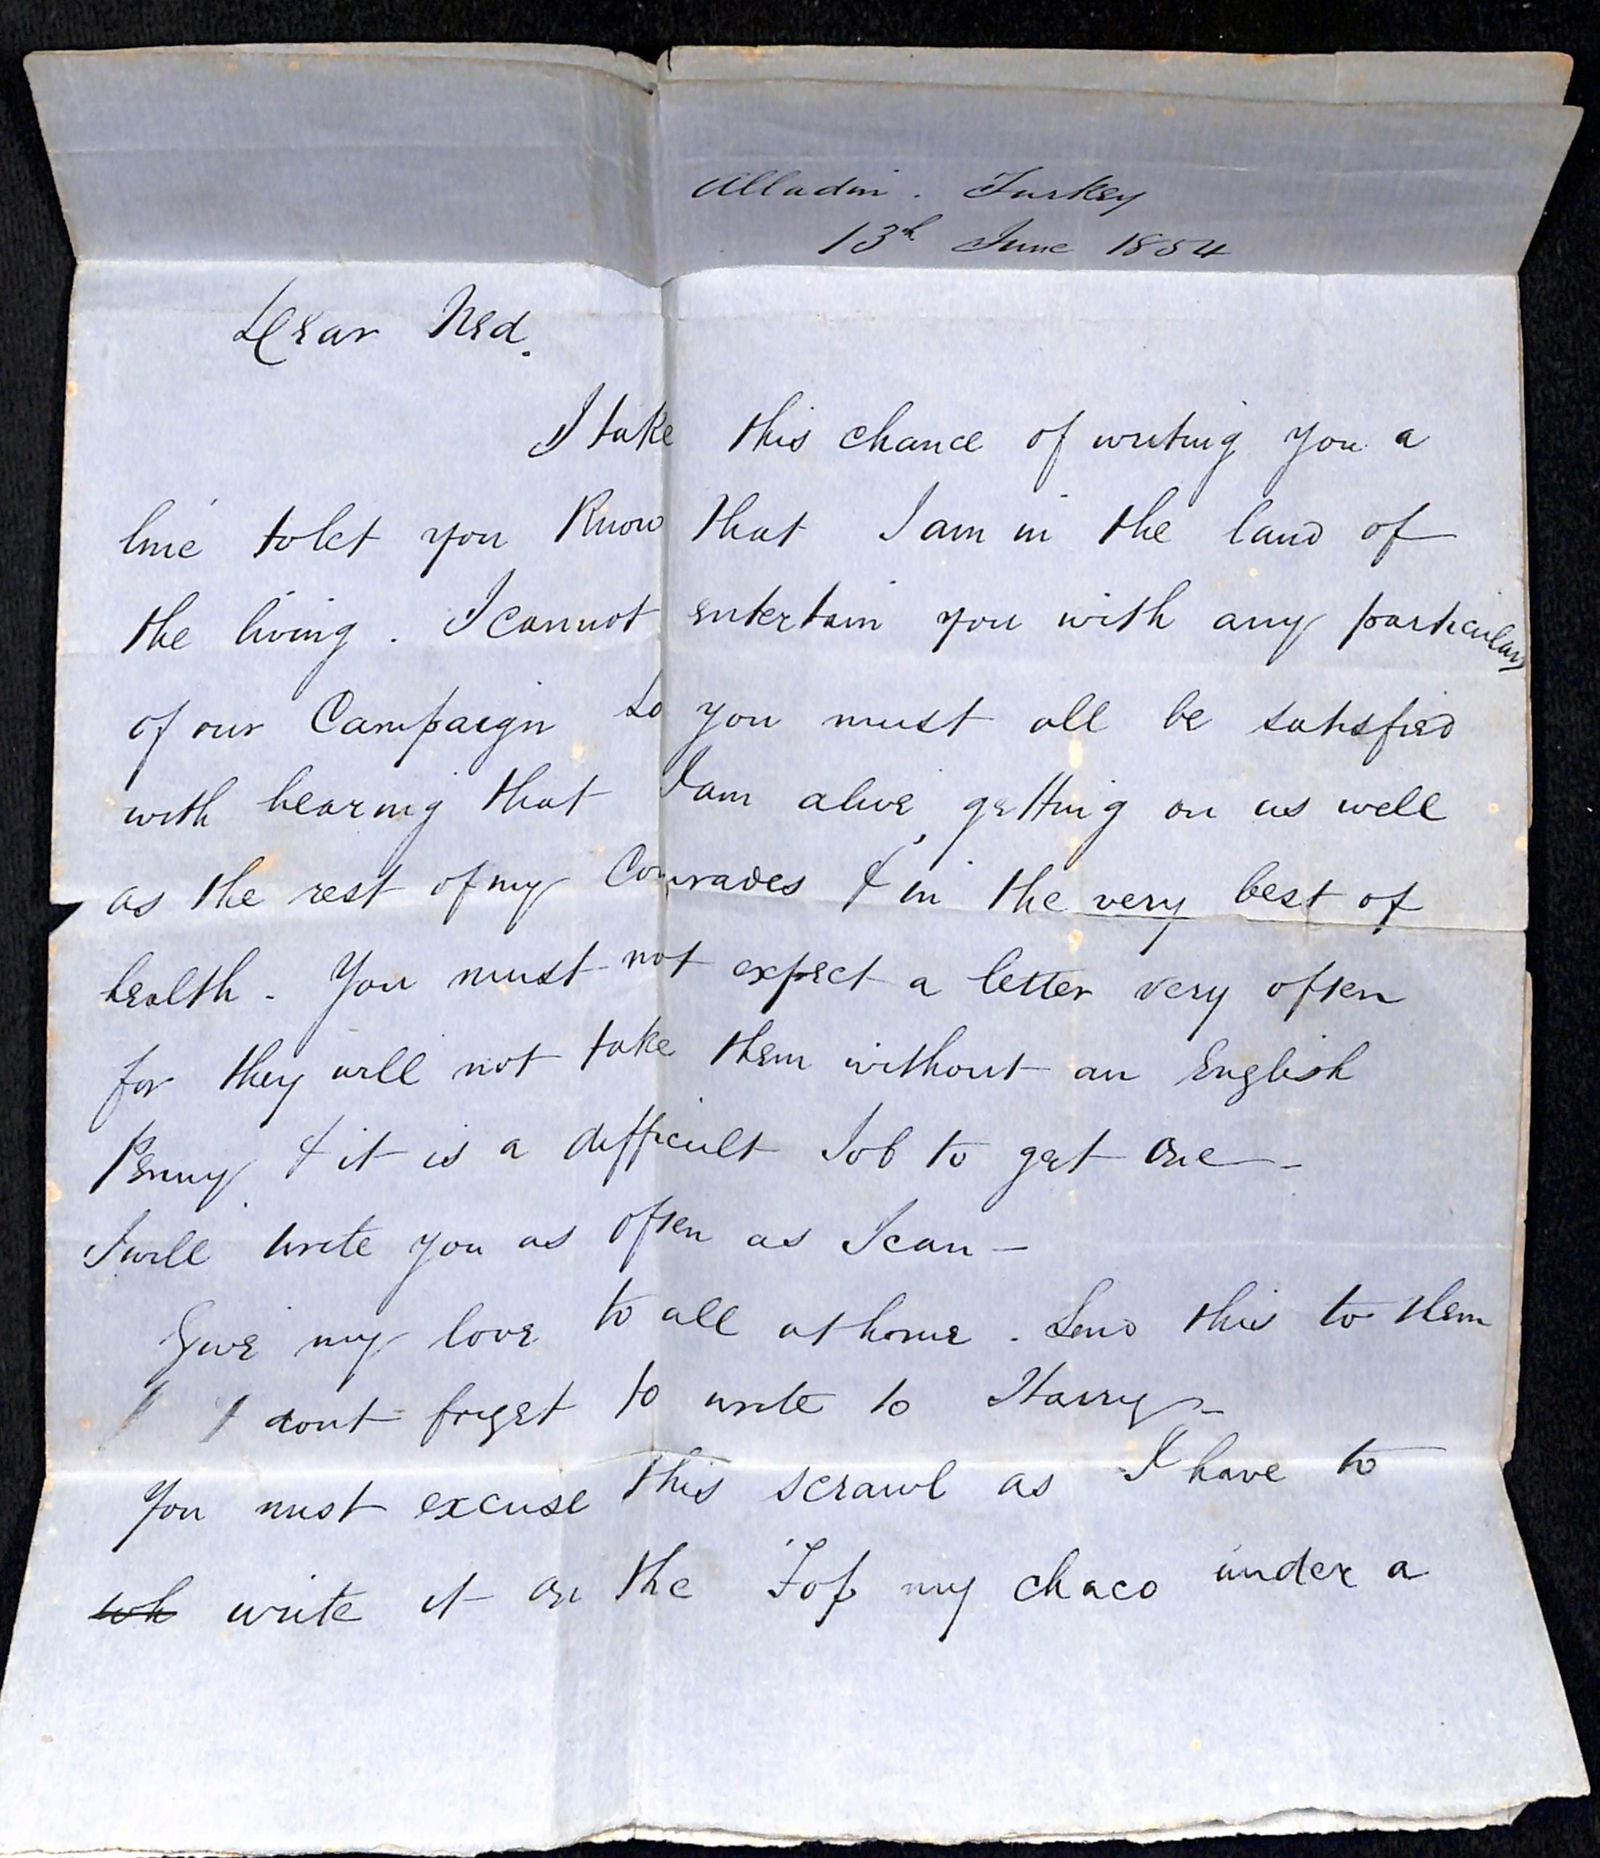 Alladin. Turkey
13th June 1854
Dear Ned.
I take this chance of writing you a
line to let you know that I am in the land of
the living. I cannot entertain you with any particulars
of our Campaign so you must all be satisfied
with hearing that I am alive, getting on as well
as the rest of my Comrades & in the very best of
health. You must not expect a letter very often
for they will not take them without an English
Penny & it is a difficult Job to get one -
I will write you as often as I can -
Give my love to all at home. Send this to them
& dont forget to write to Harry -
You must excuse this scrawl as I have to
wh write it on the Top my chaco under a